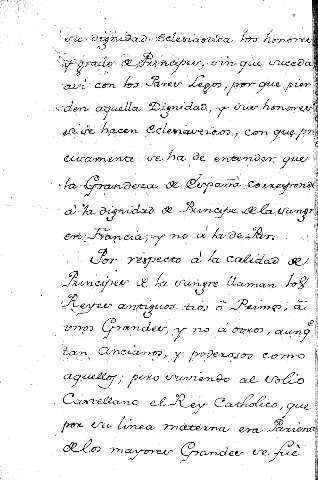 su dignidad Eclesiastica los honores
y grado de Principes, sin que suceda
asi con los Pares Legos, por que pier
den aquella Dignidad, y sus honores
si se hacen Eclesiasticos, con que pre
cisamente se ha de entender, que
la Grandeza de España corresponde
á la dignidad de Principe de la sangre
en Francia; y no á la de Par.
Por respecto á la calidad de
Principes de la sangre llaman los
Reyes antiguos tios ó Primos, á
unos Grandes, y no á otros, aunq.e
tan Ancianos, y poderosos como
aquellos; pero suviendo al Solio
Castellano el Rey Catholico, que
por su linea materna era Pariente
de los mayores Grandes se fué